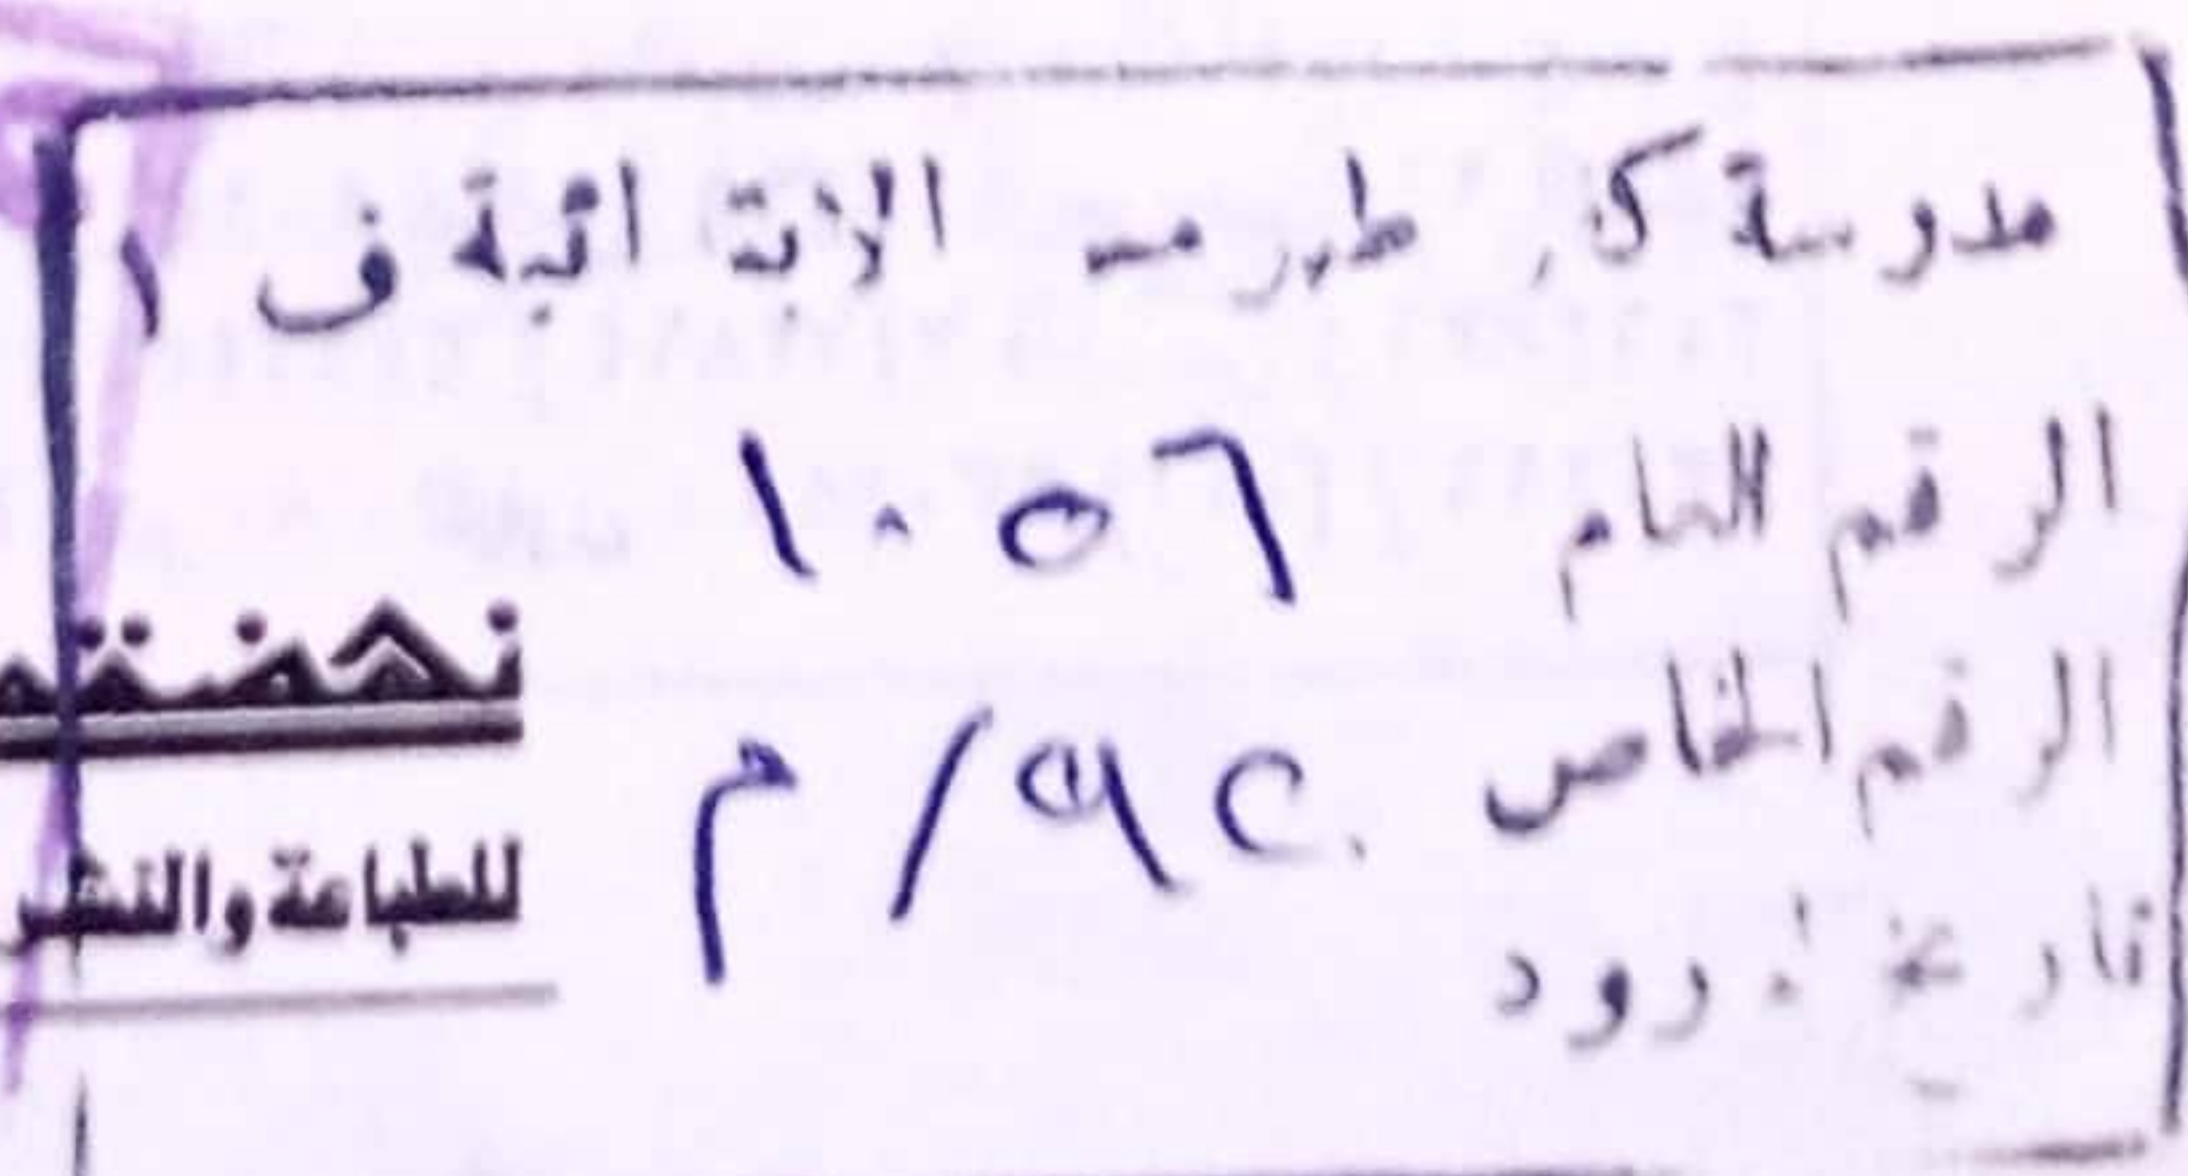 مدرسة ك. طهرمس الابتدائية ف ١
الرقم العام ١٠٥٦
الرقم الخاص ٩٢ / م
تاريخ الورود
نهضة
للطباعة والنشر